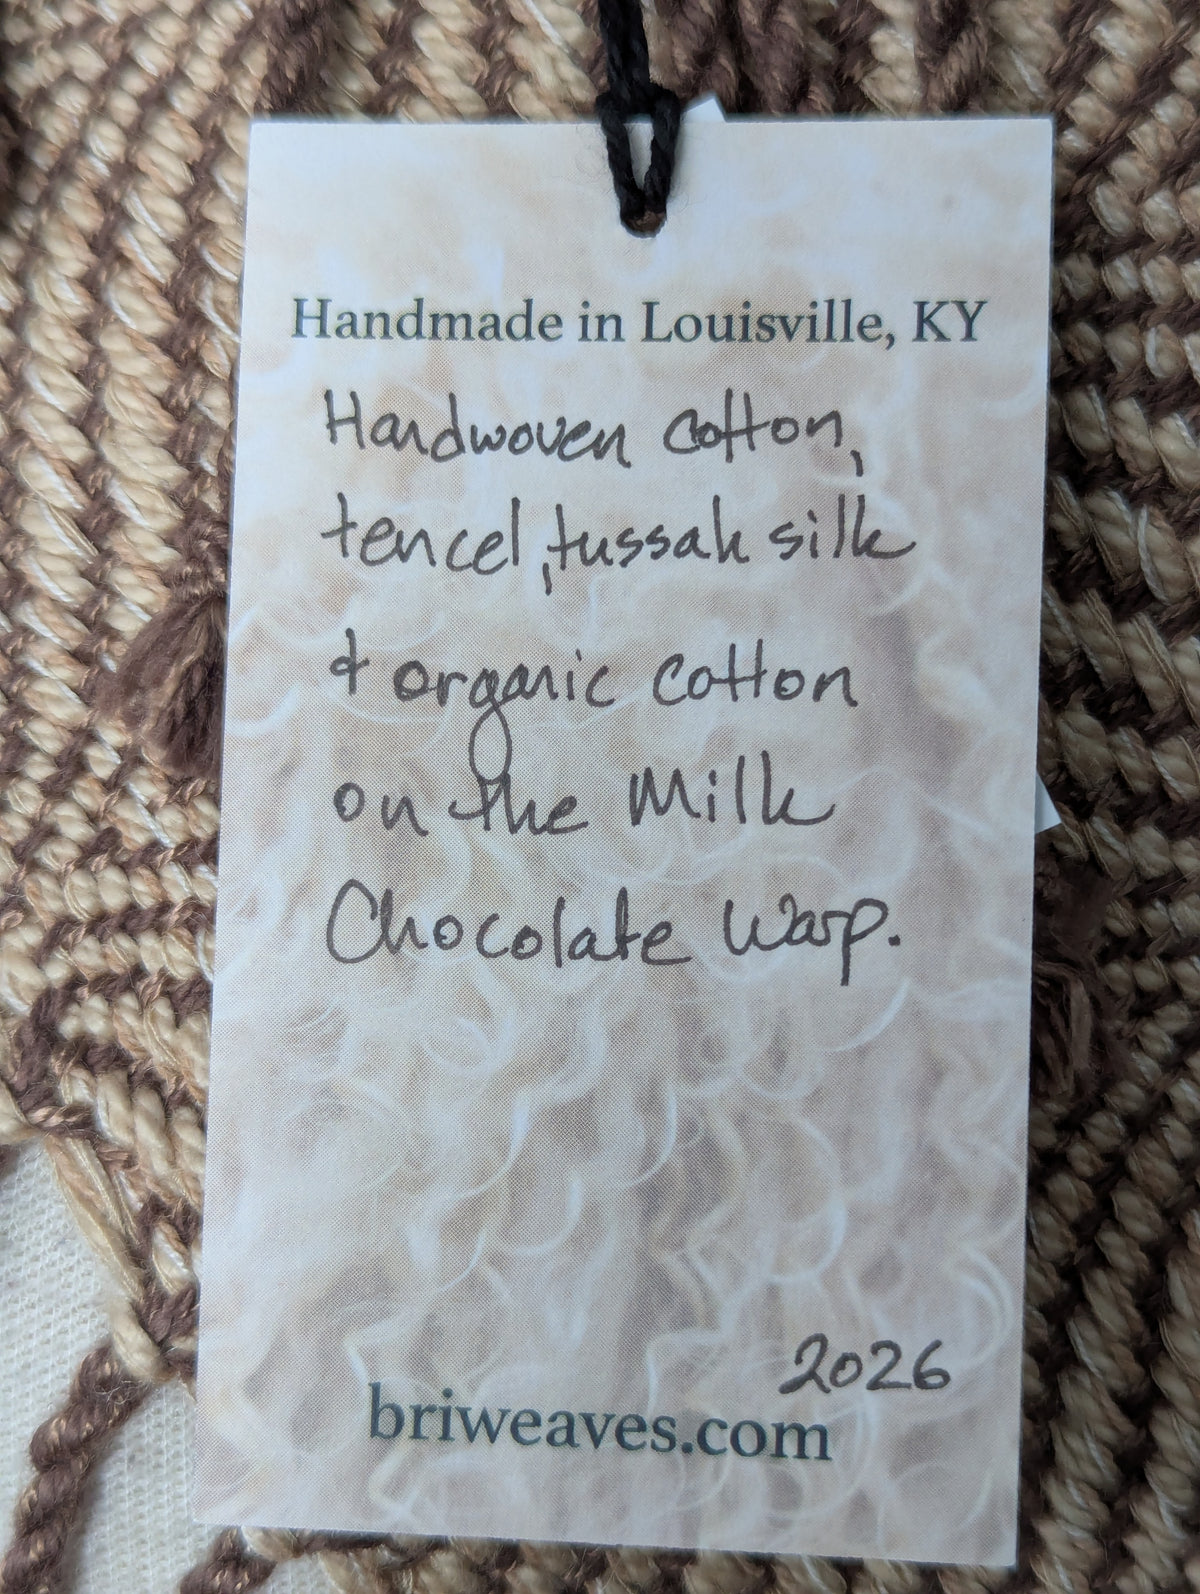 Handmade in Louisville, KY
Handwoven cotton,
tencel, tussah silk
& organic cotton
on the Milk
Chocolate Warp.
2026
briweaves.com